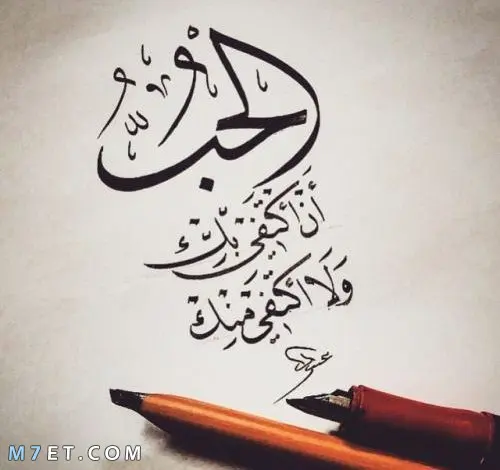 الحُبُّ
أَن أَكتَفِيَ بِكَ
وَلَا أَكتَفِي مِنكَ
M7ET.COM